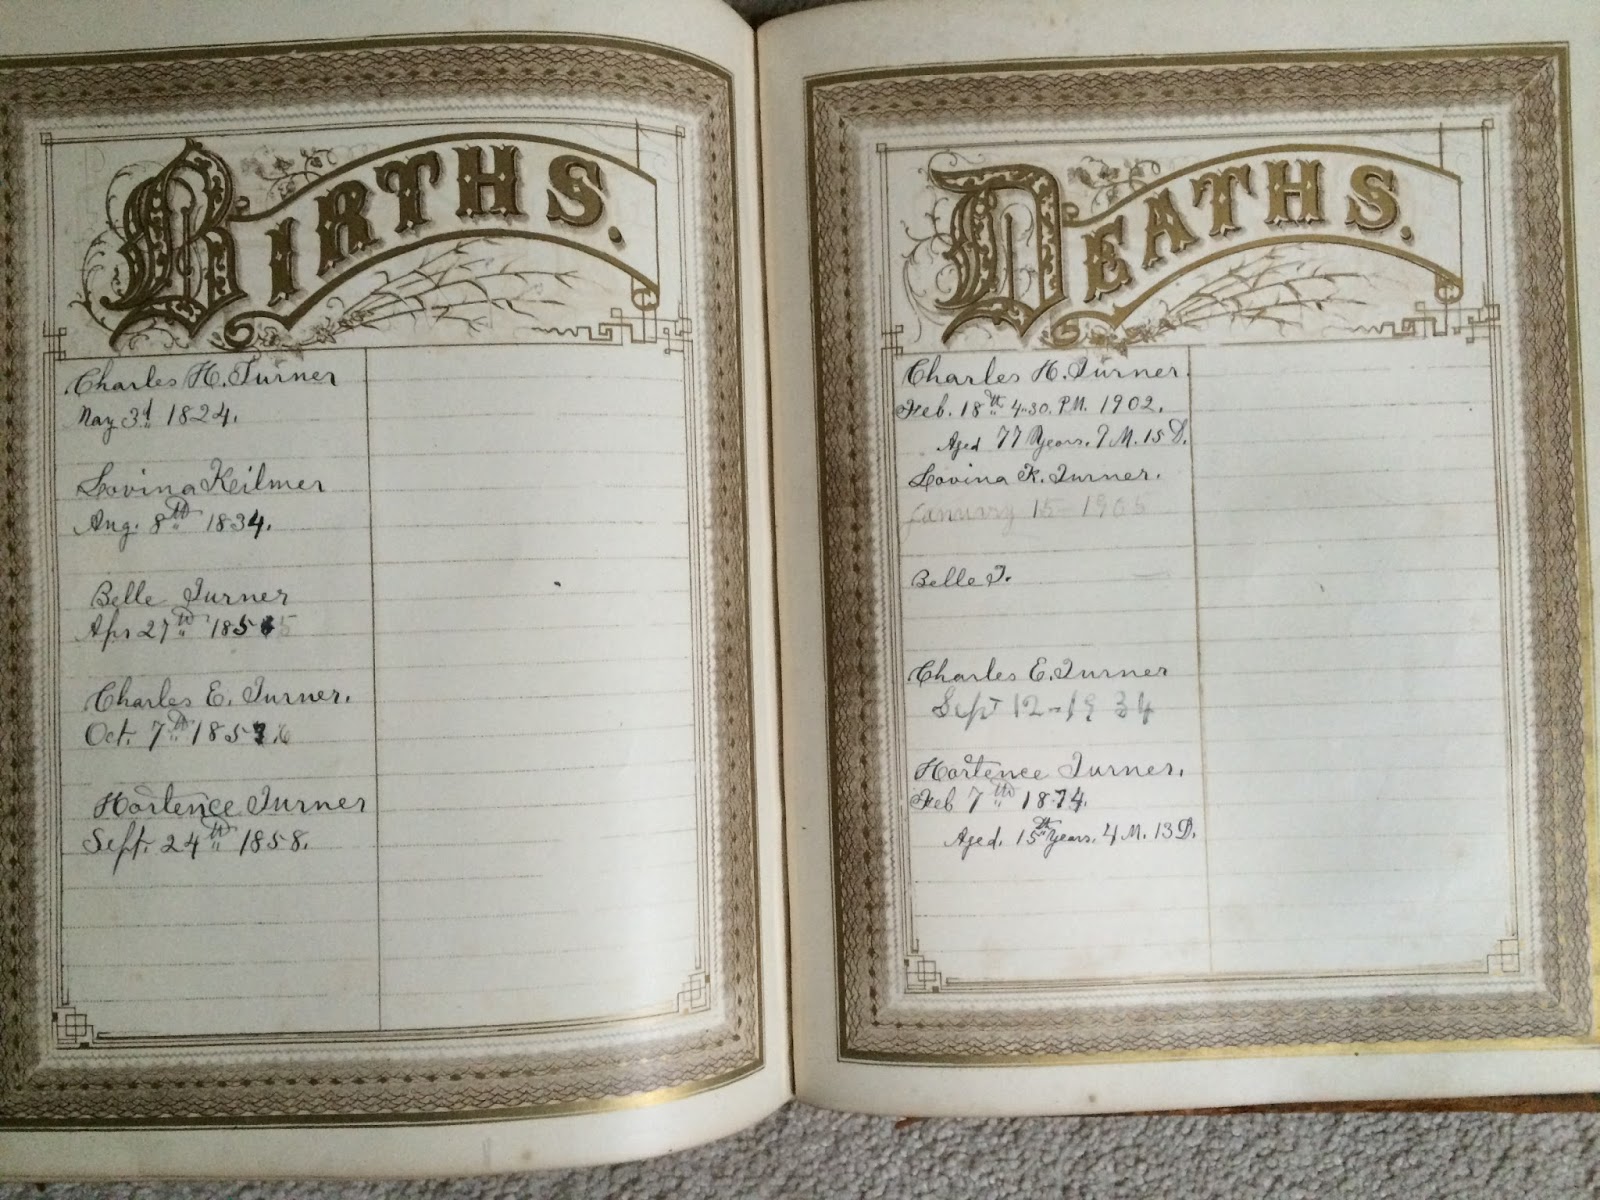 BIRTHS.
Charles H. Turner
May 3d 1824.
Lovina Keilmer
Aug. 8th 1834.
Belle Turner
Apr 27th
Charles E. Turner.
Oct. 7th
Hortence Turner
Sept. 24th 1858.
DEATHS.
Charles H. Turner.
Feb. 18th 4-30. P.M. 1902.
Aged 77 Years. 9 M. 15 D.
Lovina K. Turner.
January 15 1905
Belle T.
Charles E. Turner
Sept 12-1934
Hortence Turner.
Feb 7th 1874.
Aged. 15th Years. 4 M. 13 D.